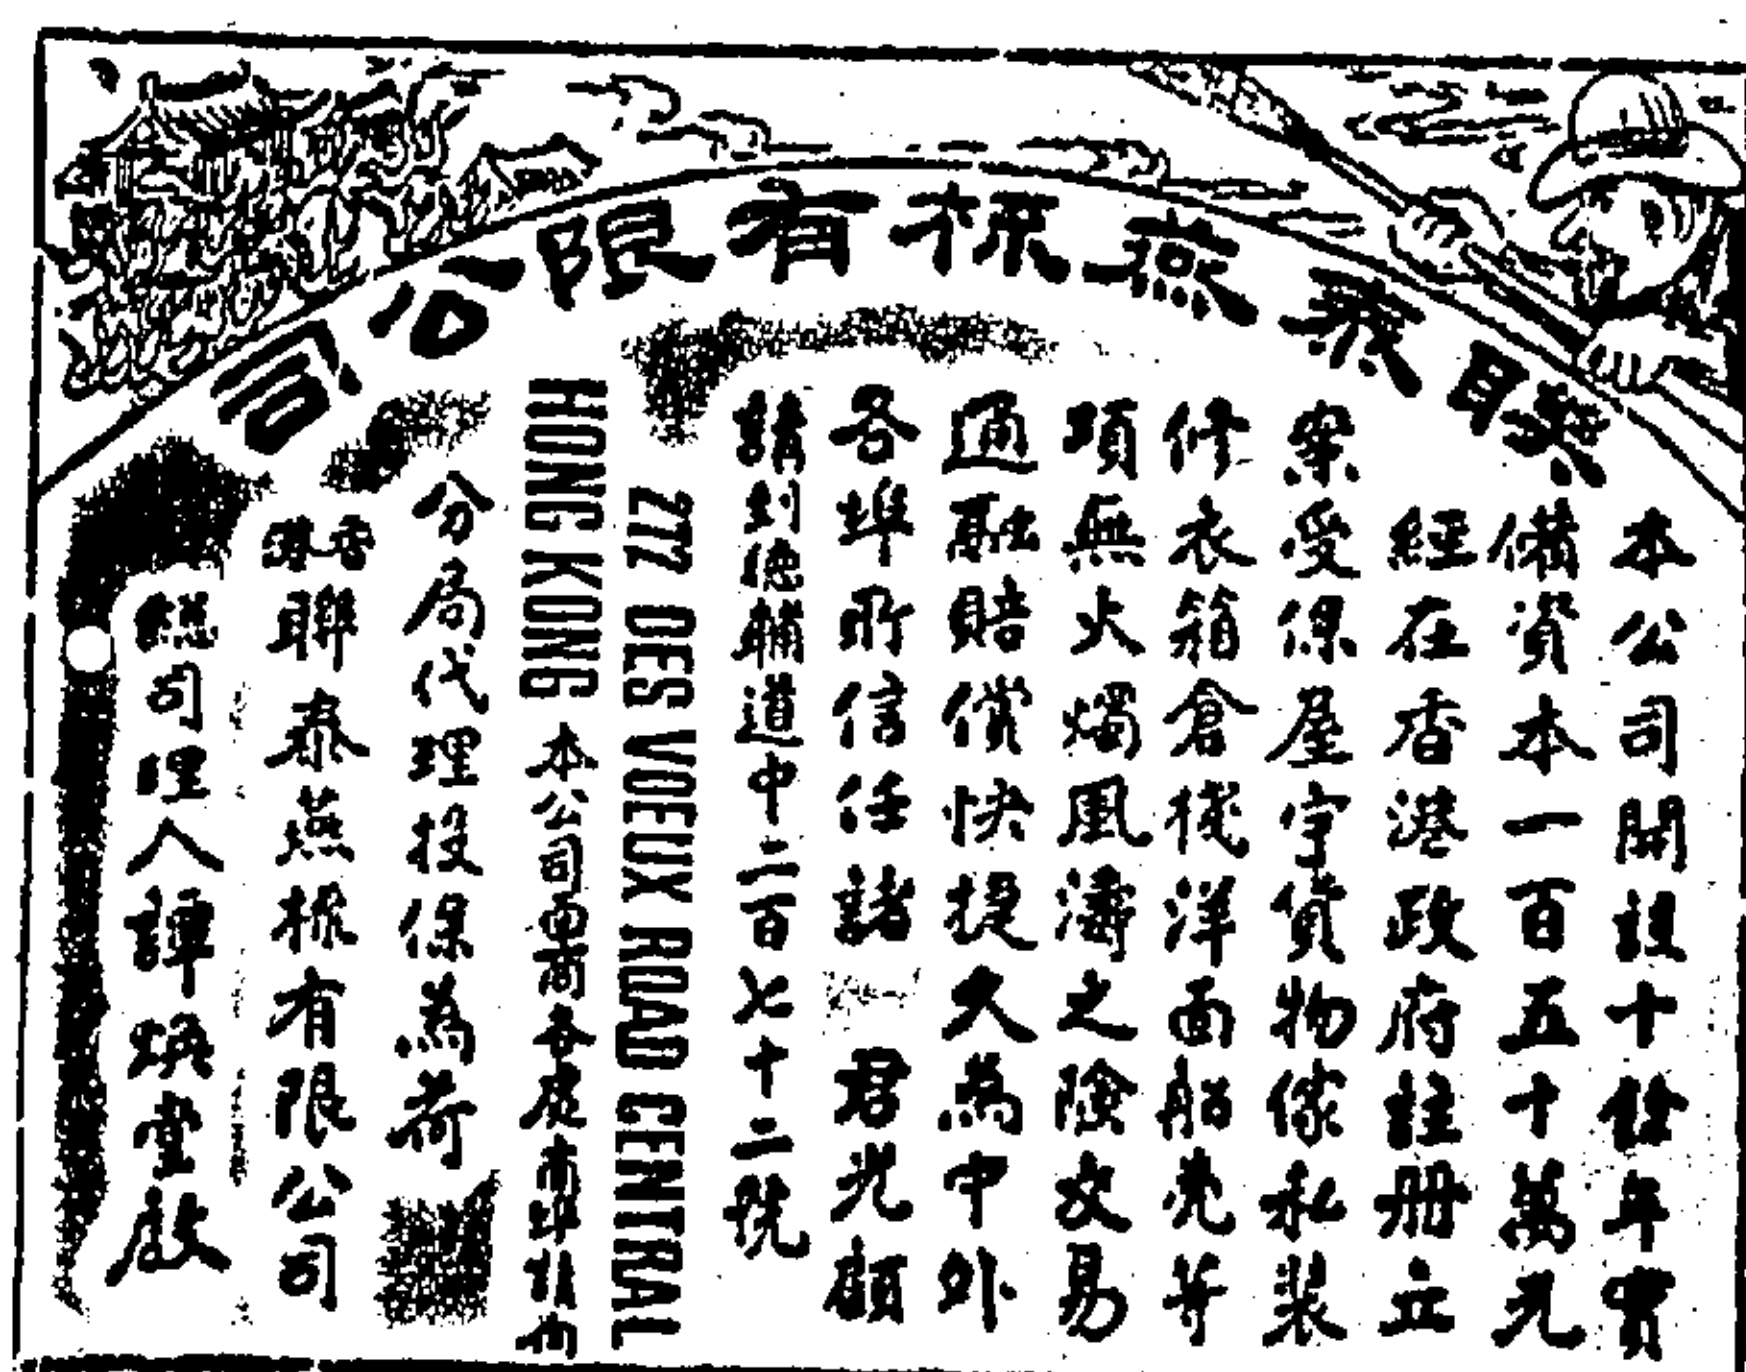 聯泰燕梳有限公司
本公司開設十餘年實
備資本一百五十萬元
經在香港政府註册立
案受保屋宇貨物傢私裝
修衣箱倉棧洋面船壳等
項無火燭風濤之險交易
通融賠償快捷久為中外
各埠所信任諸 君光顧
請到德輔道中二百七十二號
272 DES VOEUX ROAD CENTRAL
HONG KONG 本公司西商各處南埠請向
分局代理投保為荷
香港聯泰燕梳有限公司
總司理人譚煥堂啟